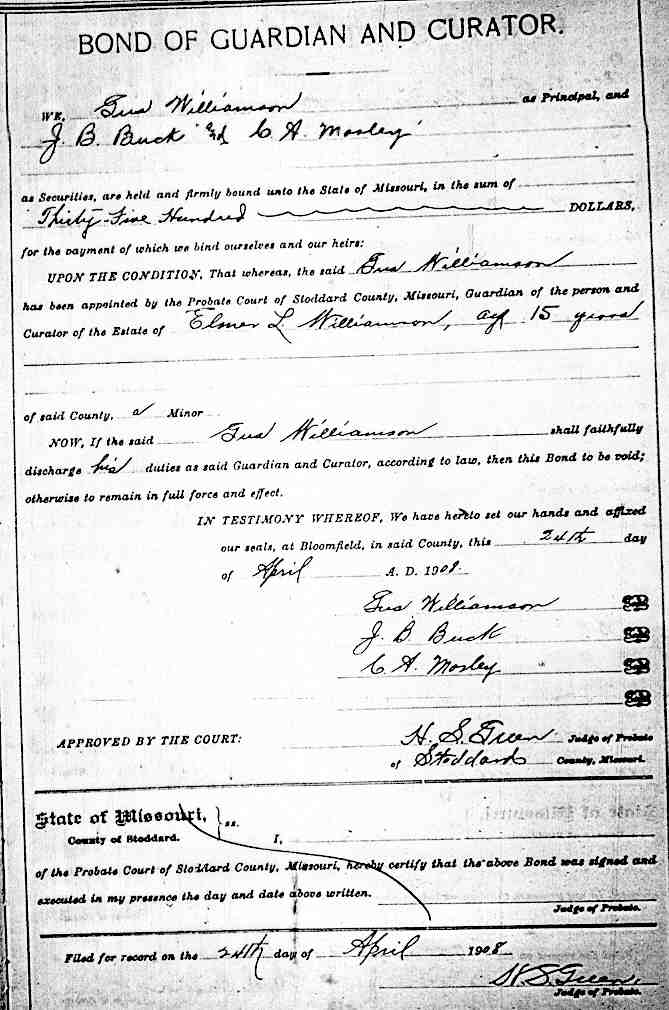 BOND OF GUARDIAN AND CURATOR.
WE, Gus Williamson as Principal, and
J. B. Buck and C. A. Mosley
as Securities, are held and firmly bound unto the State of Missouri, in the sum of
Thirty-Five Hundred DOLLARS,
for the payment of which we bind ourselves and our heirs:
UPON THE CONDITION, That whereas, the said Gus Williamson
has been appointed by the Probate Court of Stoddard County, Missouri, Guardian of the person and
Curator of the Estate of Elmer L Williamson, age 15 years
of said County, a Minor
NOW, If the said Gus Williamson shall faithfully
discharge his duties as said Guardian and Curator, according to law, then this Bond to be void;
otherwise to remain in full force and effect.
IN TESTIMONY WHEREOF, We have hereto set our hands and affixed
our seals, at Bloomfield, in said County, this 24th day
of April A. D. 1908.
Gus Williamson
J. B. Buck
C. A. Mosley
APPROVED BY THE COURT: H. S. Green Judge of Probate
of Stoddard County, Missouri.
State of Missouri, } ss.
County of Stoddard. I,
of the Probate Court of Stoddard County, Missouri, hereby certify that the above Bond was signed and
executed in my presence the day and date above written.
Judge of Probate.
Filed for record on the 24th day of April 1908
H. S. Green,
Judge of Probate.